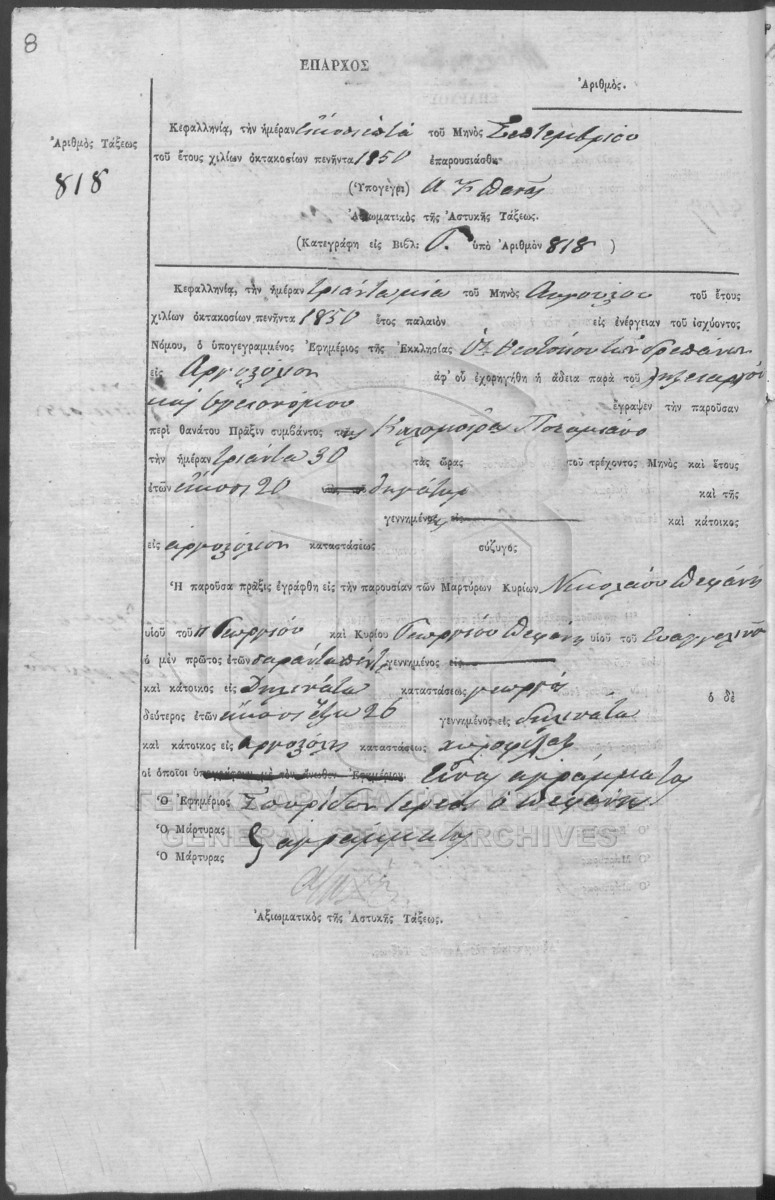 8
ΕΠΑΡΧΟΣ
Ἀριθμὸς.
Ἀριθμὸς Τάξεως
818
Κεφαλληνία, τὴν ἡμέραν εἰκοσιεπτά τοῦ Μηνὸς Σεπτεμβρίου
τοῦ ἔτους χιλίων ὀκτακοσίων πενῆντα 1850 ἐπαρουσιάσθη
(Ὑπογεγρ:)
Ἀξιωματικὸς τῆς Ἀστυκῆς Τάξεως.
(Κατεγράφη εἰς Βιβλ: Γ. ὑπὸ Ἀριθμὸν 818 )
Κεφαλληνία, τὴν ἡμέραν τριάντα μία τοῦ Μηνὸς Αυγούστου τοῦ ἔτους
χιλίων ὀκτακοσίων πενῆντα 1850 ἔτος παλαιὸν εἰς ἐνέργειαν τοῦ ἰσχύοντος
Νόμου, ὁ ὑπογεγραμμένος Ἐφημέριος τῆς Ἐκκλησίας Θεοτόκου των
εἰς Αργοστολιον ἀφ' οὗ ἐχορηγήθη ἡ ἄδεια παρὰ τοῦ
και υγειονομιου ἔγραψεν τὴν παροῦσαν
περὶ θανάτου Πρᾶξιν συμβάντος της Ποταμιανο
τὴν ἡμέραν τριάντα 30 τὰς ὥρας τοῦ τρέχοντος Μηνὸς καὶ ἔτους
ἐτῶν είκοσι 20 θυγάτηρ καὶ τῆς
γεννημένος εἰς καὶ κάτοικος
εἰς αργοστόλιον καταστάσεως σύζυγος
Ἡ παροῦσα πρᾶξις ἐγράφθη εἰς τὴν παρουσίαν τῶν Μαρτύρων Κυρίων Νικολάου
υἱοῦ τοῦ π Γεωργίου καὶ Κυρίου Γεωργίου υἱοῦ τοῦ Ευαγγελινου
ὁ μὲν πρῶτος ἐτῶν σαράντα πέντε γεννημένος εἰς
καὶ κάτοικος εἰς Διλινάτα καταστάσεως γεωργό ὁ δὲ
δεύτερος ἐτῶν είκοσι έξη 26 γεννημένος εἰς διλινάτα
καὶ κάτοικος εἰς αργοστόλι καταστάσεως χωροφύλαξ
οἱ ὁποῖοι ὑπογράφουν μὲ τὸν ἄνωθεν Ἐφημέριον είναι αγράμματοι
Ὁ Ἐφημέριος Σπυρίδων Ιερεύς ο
Ὁ Μάρτυρας αγράμματοι
Ὁ Μάρτυρας
Ἀξιωματικὸς τῆς Ἀστυκῆς Τάξεως.
ΓΕΝΙΚΑ ΑΡΧΕΙΑ ΤΟΥ ΚΡΑΤΟΥΣ
GENERAL STATE ARCHIVES